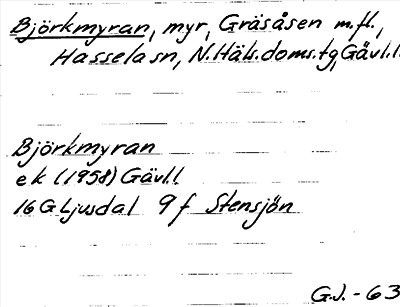 Björkmyran, myr, Gräsåsen m.fl.,
Hassela sn, N.Häls.doms.tg, Gävl.l.
Björkmyran
ek (1958) Gävl.l.
16G Ljusdal 9f Stensjön
G.J.-63